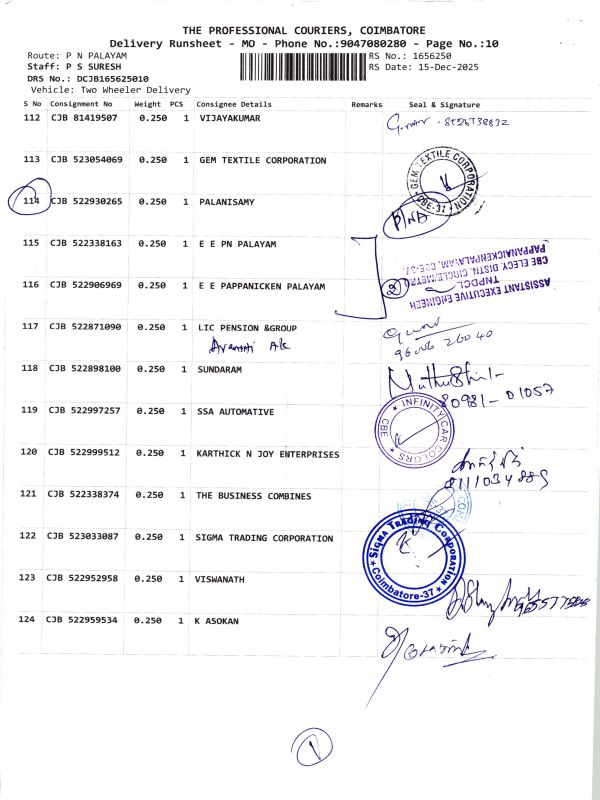 THE PROFESSIONAL COURIERS, COIMBATORE
Delivery Runsheet - MO - Phone No.:9047080280 - Page No.:10
Route: P N PALAYAM
RS No.: 1656250
Staff: P S SURESH
RS Date: 15-Dec-2025
DRS No.: DCJB165625010
Vehicle: Two Wheeler Delivery
S No Consignment No Weight PCS Consignee Details Remarks Seal & Signature
112 CJB 81419507 0.250 1 VIJAYAKUMAR
113 CJB 523054069 0.250 1 GEM TEXTILE CORPORATION
GEM TEXTILE CORPORATION
CBE-37
114 CJB 522930265 0.250 1 PALANISAMY
115 CJB 522338163 0.250 1 E E PN PALAYAM
116 CJB 522906969 0.250 1 E E PAPPANICKEN PALAYAM
2
ASSISTANT EXECUTIVE ENGINEER
TNPDCL
CBE ELECY. DISTN. CIRCLE/METRO
PAPPANAICKENPALAYAM, CBE-37
117 CJB 522871090 0.250 1 LIC PENSION &GROUP
118 CJB 522898100 0.250 1 SUNDARAM
80981-01057
119 CJB 522997257 0.250 1 SSA AUTOMATIVE
INFINITY CAR COLORS
CBE
120 CJB 522999512 0.250 1 KARTHICK N JOY ENTERPRISES
121 CJB 522338374 0.250 1 THE BUSINESS COMBINES
122 CJB 523033087 0.250 1 SIGMA TRADING CORPORATION
SIGMA TRADING CORPORATION
Coimbatore-37
123 CJB 522952958 0.250 1 VISWANATH
124 CJB 522959534 0.250 1 K ASOKAN
1